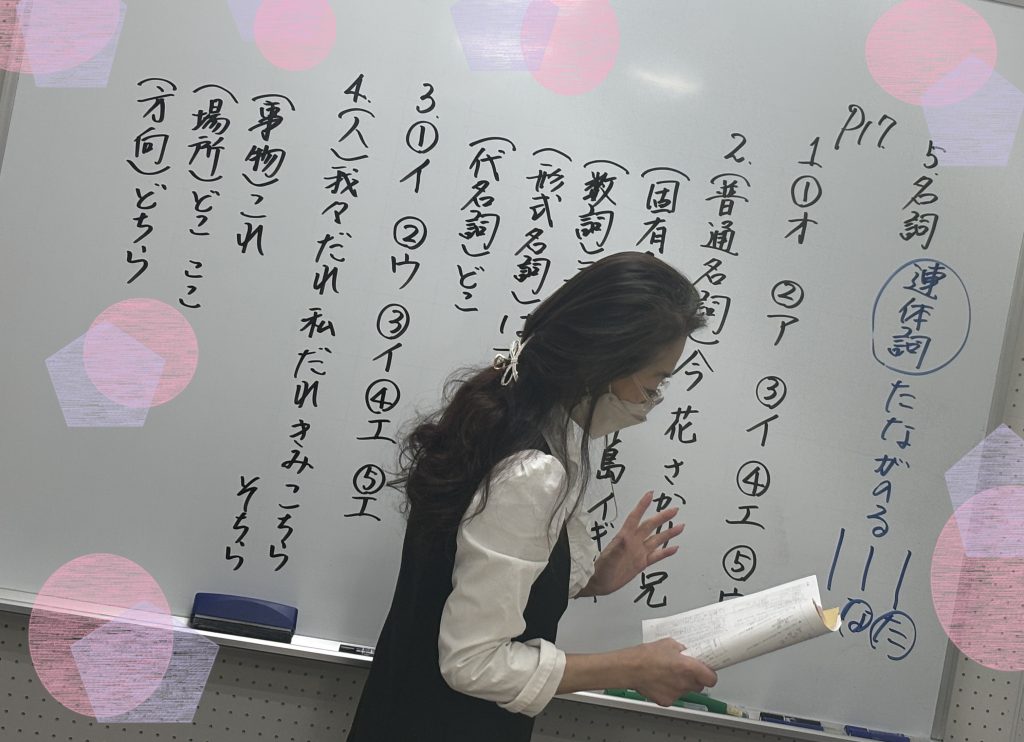 P17
5. 名詞 連体詞 たながのる
｜な ｜た
1. ①オ ②ア ③イ ④エ ⑤
2. (普通名詞) 今 花 さかり 兄
(固有 島 イギ
(数詞)
(形式名詞) は
(代名詞) どこ
3. ①イ ②ウ ③イ ④エ ⑤エ
4. (人) 我々 だれ 私 だれ きみ こちら そちら
(事物) これ
(場所) どこ ここ
(方向) どちら